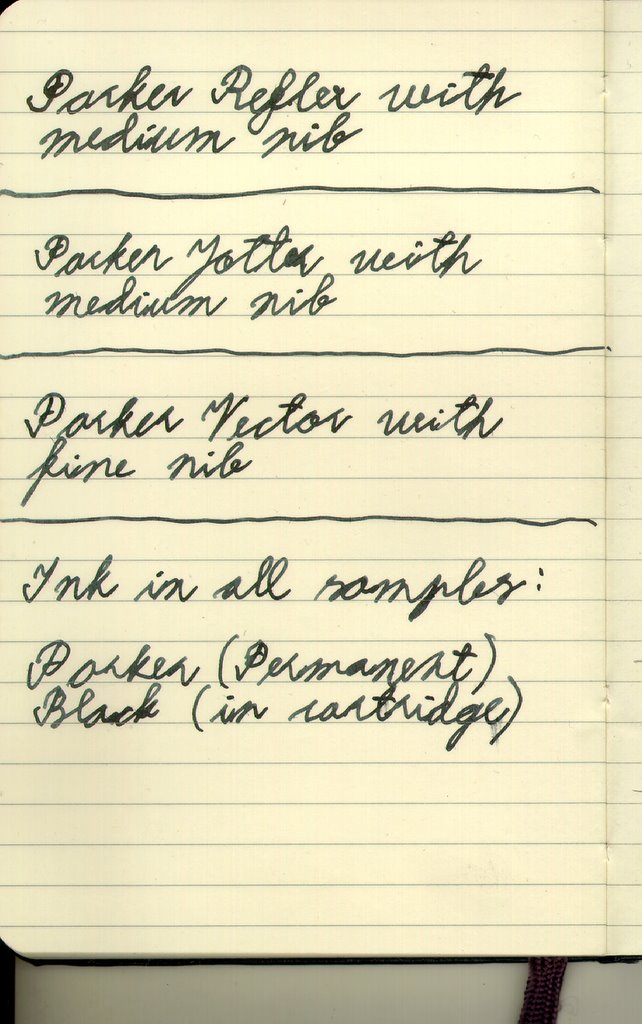 Parker Reflex with
medium nib
Parker Jotter with
medium nib
Parker Vector with
fine nib
Ink in all samples:
Parker (Permanent)
Black (in cartridge)